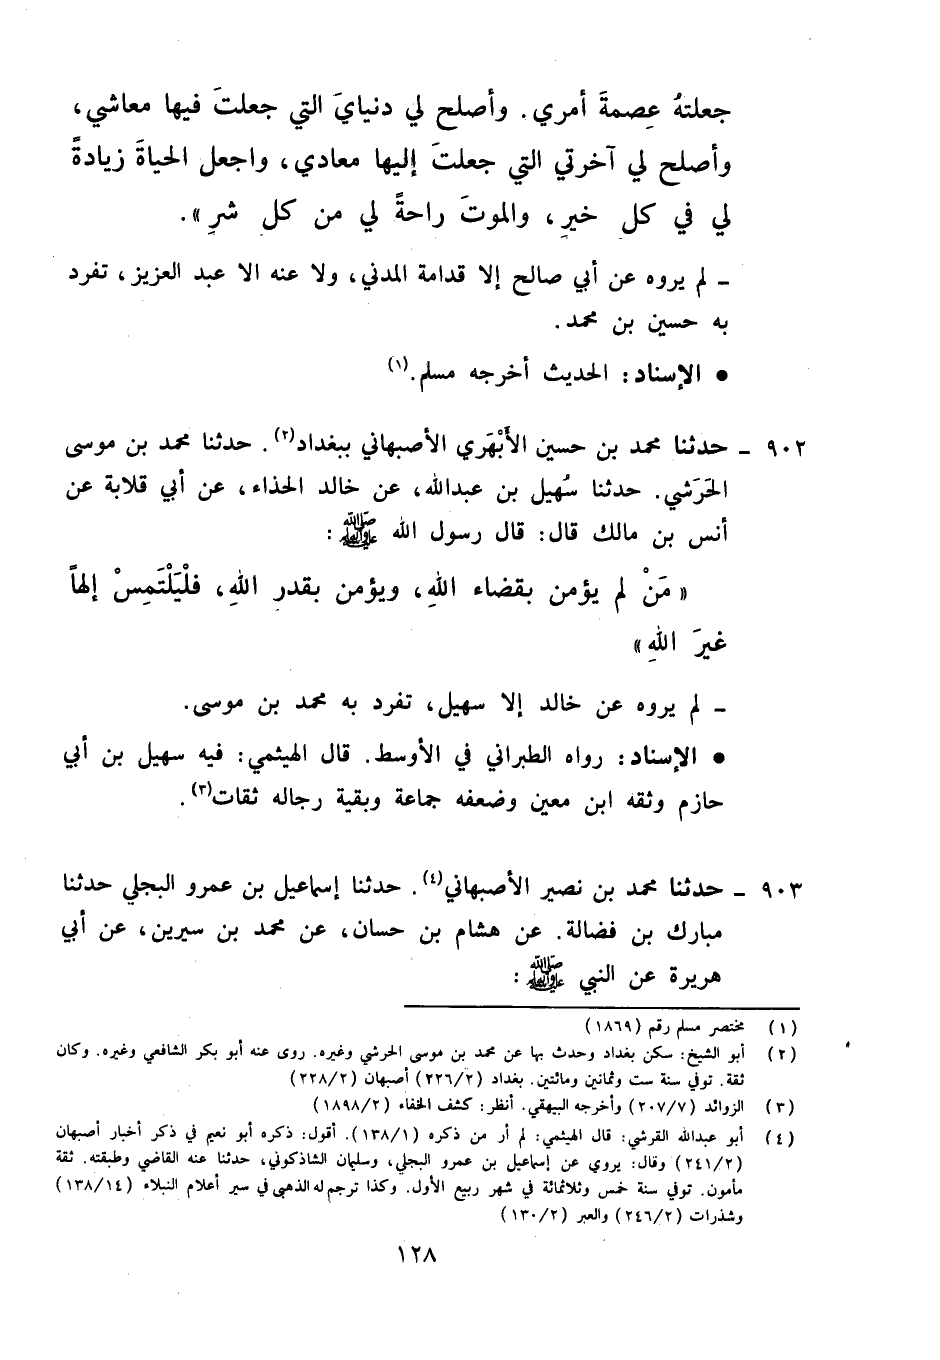 جعلتهُ عِصمةَ أمري. وأصلح لي دنيايَ التي جعلتَ فيها معاشي،
وأصلح لي آخرتي التي جعلتَ إليها معادي، واجعل الحياةَ زيادةً
لي في كل خيرٍ، والموتَ راحةً لي من كل شرٍ».
ـ لم يروه عن أبي صالح إلا قدامة المدني، ولا عنه الا عبد العزيز، تفرد
به حسين بن محمد.
● الإسناد: الحديث أخرجه مسلم.(١)
٩٠٢ ـ حدثنا محمد بن حسين الأَبْهَري الأصبهاني ببغداد(٢). حدثنا محمد بن موسى
الحَرَشي. حدثنا سُهيل بن عبدالله، عن خالد الحذاء، عن أبي قلابة عن
أنس بن مالك قال: قال رسول الله ﷺ:
« مَنْ لم يؤمن بقضاء اللهِ، ويؤمن بقدرِ اللهِ، فلْيَلْتَمِسْ إلهاً
غيرَ اللهِ»
ـ لم يروه عن خالد إلا سهيل، تفرد به محمد بن موسى.
● الإسناد: رواه الطبراني في الأوسط. قال الهيثمي: فيه سهيل بن أبي
حازم وثقه ابن معين وضعفه جماعة وبقية رجاله ثقات(٣).
٩٠٣ ـ حدثنا محمد بن نصير الأصبهاني(٤). حدثنا إسماعيل بن عمرو البجلي حدثنا
مبارك بن فضالة. عن هشام بن حسان، عن محمد بن سيرين، عن أبي
هريرة عن النبي ﷺ:
(١) مختصر مسلم رقم (١٨٦٩)
(٢) أبو الشيخ: سكن بغداد وحدث بها عن محمد بن موسى الحرشي وغيره. روى عنه أبو بكر الشافعي وغيره. وكان
ثقة. توفي سنة ست وثمانين ومائتين. بغداد (٢٢٦/٢) أصبهان (٢٢٨/٢)
(٣) الزوائد (٢٠٧/٧) وأخرجه البيهقي. أنظر: كشف الخفاء (١٨٩٨/٢)
(٤) أبو عبدالله القرشي: قال الهيثمي: لم أر من ذكره (١٣٨/١). أقول: ذكره أبو نعيم في ذكر أخبار أصبهان
(٢٤١/٢) وقال: يروي عن إسماعيل بن عمرو البجلي، وسليمان الشاذكوني، حدثنا عنه القاضي وطبقته. ثقة
مأمون. توفي سنة خمس وثلاثمائة في شهر ربيع الأول. وكذا ترجم له الذهبي في سير أعلام النبلاء (١٣٨/١٤)
وشذرات (٢٤٦/٢) والعبر (١٣٠/٢)
١٢٨